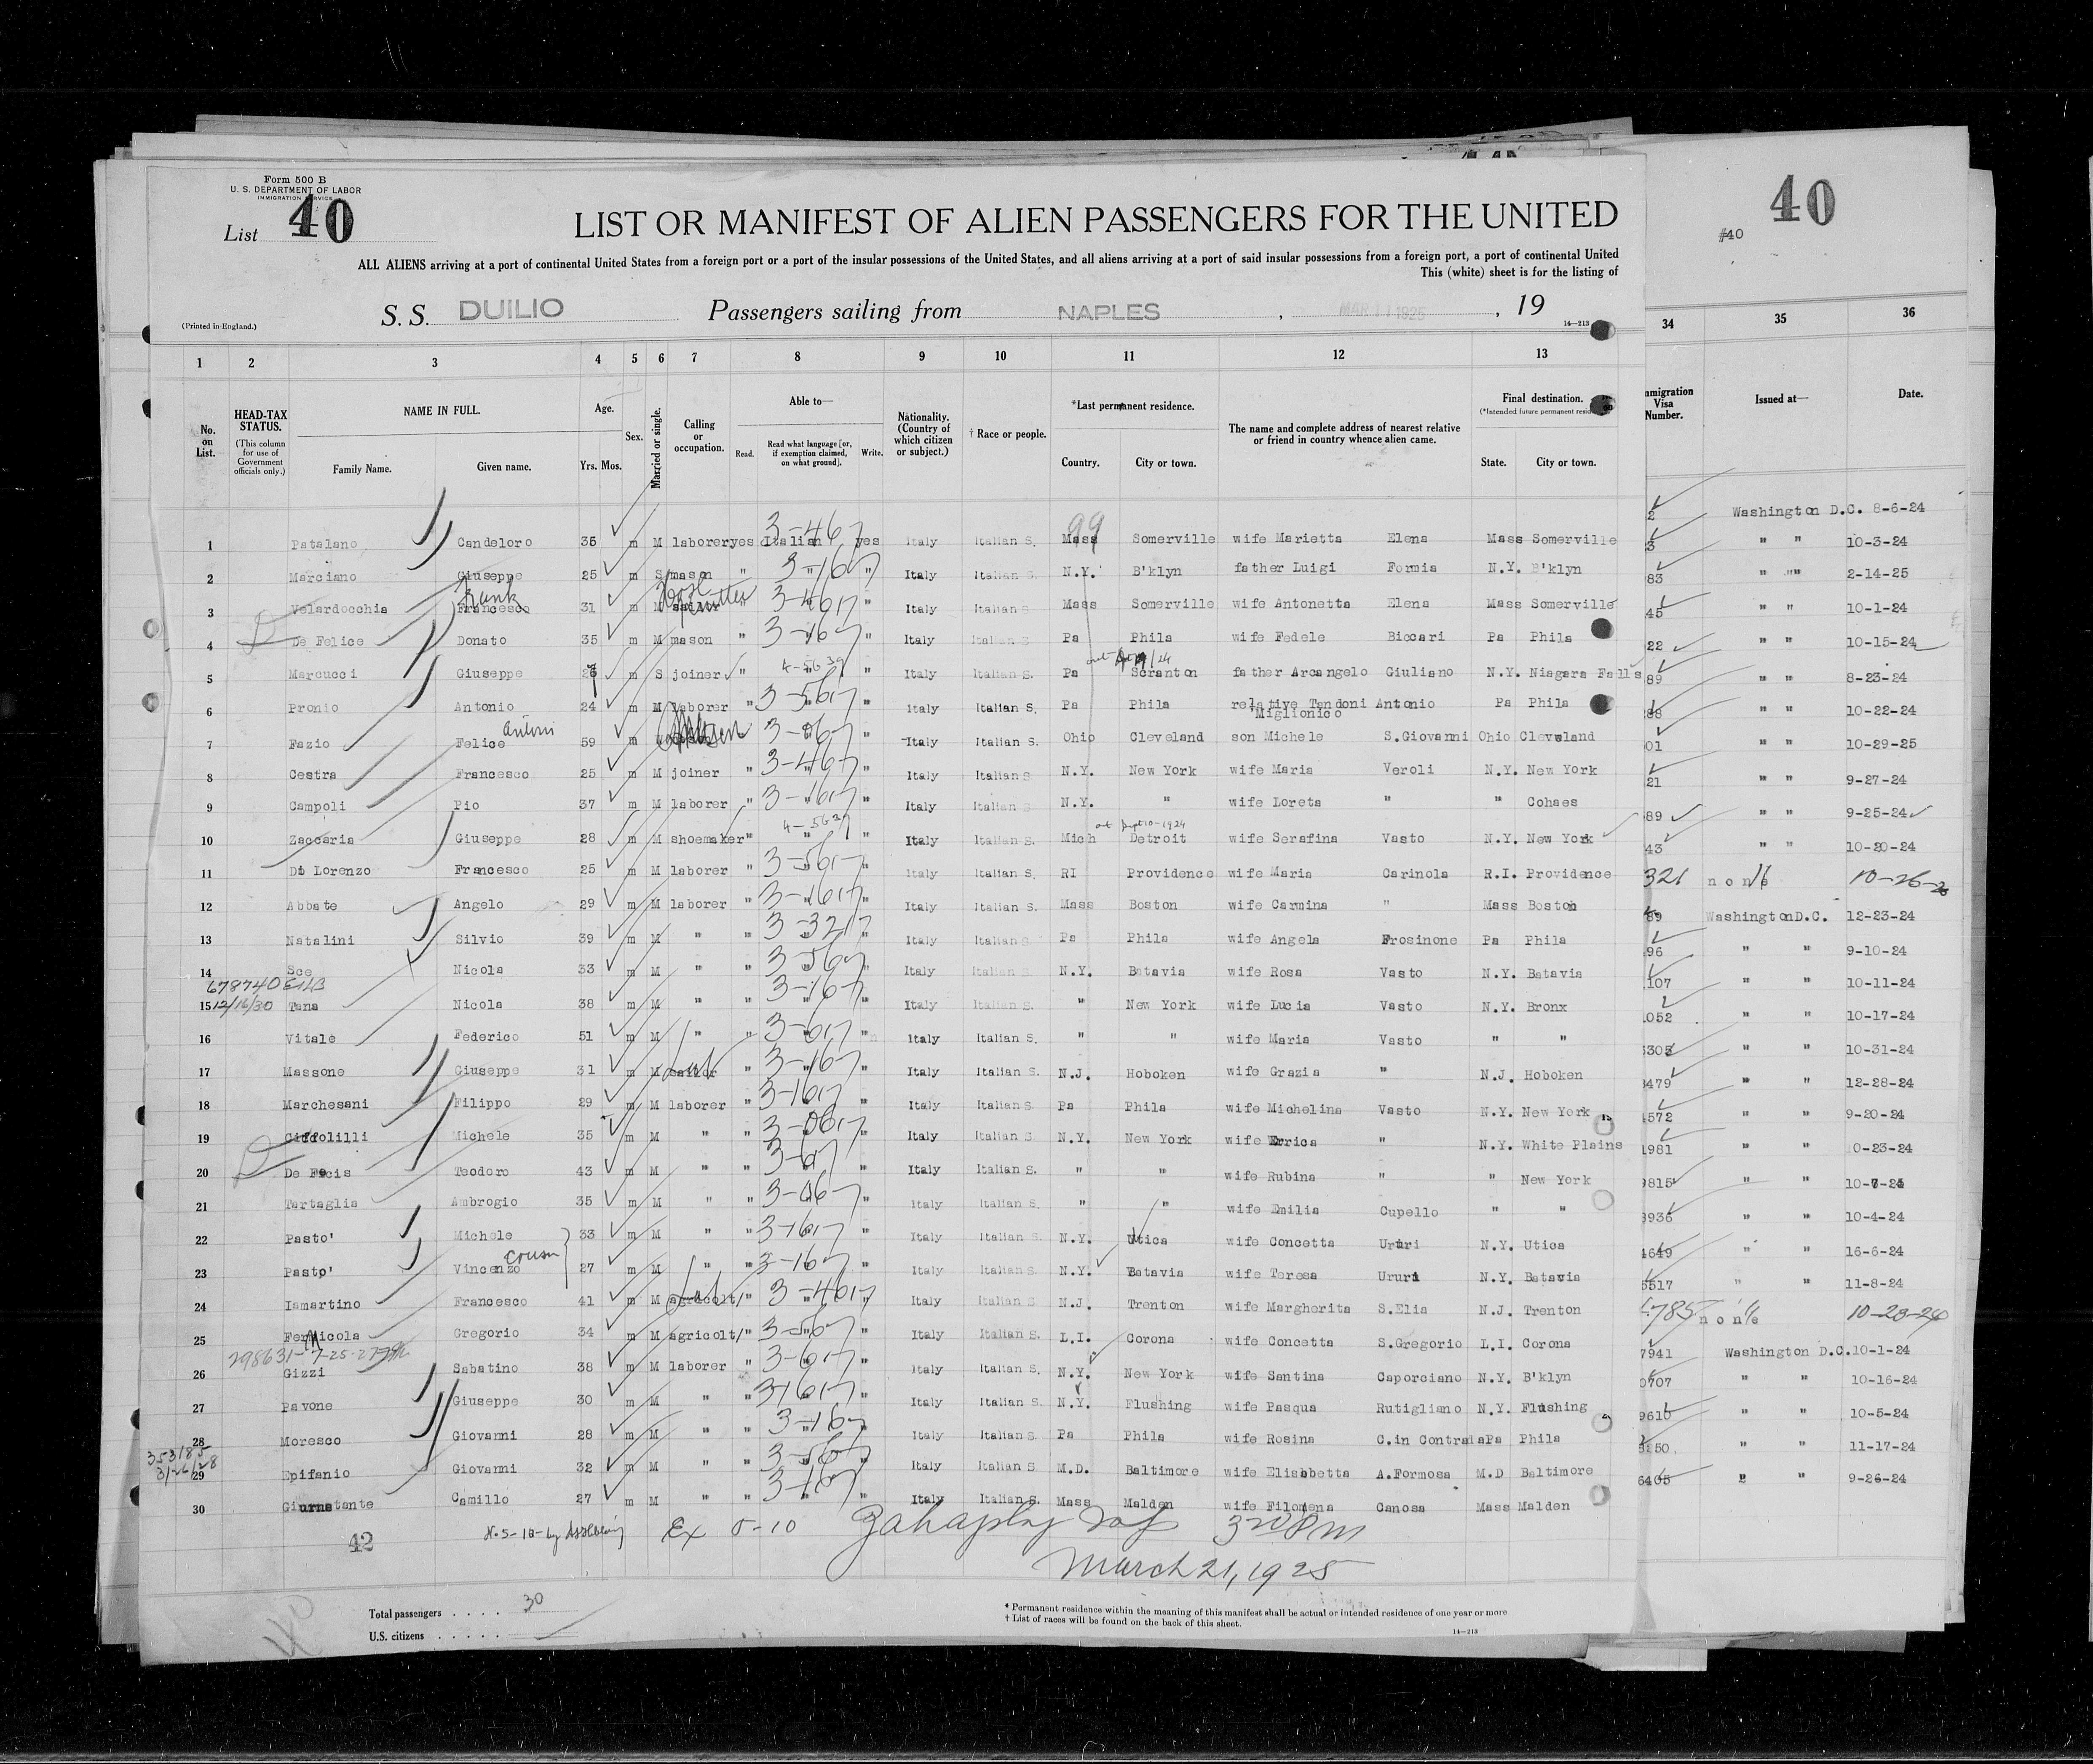 Form 500 B
U. S. DEPARTMENT OF LABOR
IMMIGRATION SERVICE
List 40
LIST OR MANIFEST OF ALIEN PASSENGERS FOR THE UNITED
40
#40
ALL ALIENS arriving at a port of continental United States from a foreign port or a port of the insular possessions of the United States, and all aliens arriving at a port of said insular possessions from a foreign port, a port of continental United
This (white) sheet is for the listing of
(Printed in England.)
S. S. DUILIO Passengers sailing from NAPLES , MAR 11 1925 , 19
14—213
1 2 3 4 5 6 7 8 9 10 11 12 13 34 35 36
No. on List.
HEAD-TAX STATUS.
(This column for use of Government officials only.)
NAME IN FULL.
Family Name. Given name.
Age.
Yrs. Mos.
Sex.
Married or single.
Calling or occupation.
Able to—
Read. Read what language [or, if exemption claimed, on what ground]. Write.
Nationality. (Country of which citizen or subject.)
† Race or people.
*Last permanent residence.
Country. City or town.
The name and complete address of nearest relative or friend in country whence alien came.
Final destination.
(*Intended future permanent
State. City or town.
mmigration Visa Number.
Issued at—
Date.
99
1 Patalano Candeloro 35 m M laborer yes Italian yes Italy Italian S. Mass Somerville wife Marietta Elena Mass Somerville 2 Washington D.C. 8-6-24
2 Marciano Giuseppe 25 m S mason " " " Italy Italian S. N.Y. B'klyn father Luigi Formia N.Y. B'klyn 3 " " 10-3-24
Frank
3 Velardocchia Francesco 31 m M " " " Italy Italian S. Mass Somerville wife Antonetta Elena Mass Somerville 83 " " 2-14-25
4 De Felice Donato 35 m M mason " " " Italy Italian S Pa Phila wife Fedele Biccari Pa Phila 45 " " 10-1-24
5 Marcucci Giuseppe 26 m S joiner " " " Italy Italian S. Pa Scranton father Arcangelo Giuliano N.Y. Niagara Falls 22 " " 10-15-24
6 Pronio Antonio 24 m M laborer " " " Italy Italian S. Pa Phila relative Tandoni Antonio Pa Phila 89 " " 8-23-24
Miglionico
7 Fazio Felice 59 m " " " Italy Italian S. Ohio Cleveland son Michele S.Giovanni Ohio Cleveland " " 10-22-24
8 Cestra Francesco 25 m M joiner " " " Italy Italian S N.Y. New York wife Maria Veroli N.Y. New York 01 " " 10-29-25
9 Campoli Pio 37 m M laborer " " " Italy Italian S. N.Y. " wife Loreta " " Cohaes 21 " " 9-27-24
10 Zaccaria Giuseppe 28 m M shoemaker " " " Italy Italian S. Mich Detroit wife Serafina Vasto N.Y. New York 89 " " 9-25-24
11 Di Lorenzo Francesco 25 m M laborer " " " Italy Italian S. RI Providence wife Maria Carinola R.I. Providence 43 " " 10-20-24
12 Abbate Angelo 29 m M laborer " " " Italy Italian S. Mass Boston wife Carmina " Mass Boston 321 none
13 Natalini Silvio 39 m M " " " " Italy Italian S Pa Phila wife Angela Frosinone Pa Phila Washington D.C. 12-23-24
14 Sce Nicola 33 m M " " " " Italy Italian S N.Y. Batavia wife Rosa Vasto N.Y. Batavia 96 " " 9-10-24
678740
15 12/16/30 Tana Nicola 38 m M " " " " Italy Italian S. " New York wife Lucia Vasto N.Y. Bronx 107 " " 10-11-24
16 Vitale Federico 51 m M " " " " Italy Italian S. " " wife Maria Vasto " " 052 " " 10-17-24
17 Massone Giuseppe 31 m M " " " Italy Italian S. N.J. Hoboken wife Grazia " N.J. Hoboken 305 " " 10-31-24
18 Marchesani Filippo 29 m M laborer " " " Italy Italian S Pa Phila wife Michelina Vasto N.Y. New York 479 " " 12-28-24
19 Ciffolilli Michele 35 m M " " " " Italy Italian S N.Y. New York wife Errica " N.Y. White Plains 572 " " 9-20-24
20 De Fecis Teodoro 43 m M " " " " Italy Italian S. " " wife Rubina " " New York 981 " " 10-23-24
21 Tartaglia Ambrogio 35 m M " " " " Italy Italian S. " " wife Emilia Cupello " " 9815 " "
22 Pasto' Michele 33 m M " " " " Italy Italian S. N.Y. Utica wife Concetta Ururi N.Y. Utica 936 " " 10-4-24
cousin
23 Pasto' Vincenzo 27 m M " " " " Italy Italian S. N.Y. Batavia wife Teresa Ururi N.Y. Batavia " " 16-6-24
24 Iamartino Francesco 41 m M agricolt " " " Italy Italian S. N.J. Trenton wife Margherita S.Elia N.J. Trenton 5517 " " 11-8-24
25 Gregorio 34 m M agricolt " " " Italy Italian S. L.I. Corona wife Concetta S.Gregorio L.I. Corona 785 none
298631
26 Gizzi Sabatino 38 m M laborer " " " Italy Italian S. N.Y. New York wife Santina Caporciano N.Y. B'klyn 7941 Washington D.C. 10-1-24
27 Pavone Giuseppe 30 m M " " " " Italy Italian S. N.Y. Flushing wife Pasqua Rutigliano N.Y. Flushing 0707 " " 10-16-24
28 Moresco Giovanni 28 m M " " " " Italy Italian S. Pa Phila wife Rosina C.in Contrada Pa Phila 9610 " " 10-5-24
353185
3/26/28
29 Epifanio Giovanni 32 m M " " " " Italy Italian S. M.D. Baltimore wife Elisabetta A.Formosa M.D Baltimore " " 11-17-24
30 Giurnatante Camillo 27 m M " " " " Italy Italian S. Mass Malden wife Filomena Canosa Mass Malden 6405 " " 9-26-24
42
March 21, 1925
Total passengers . . . . 30
U.S. citizens . . . . .
* Permanent residence within the meaning of this manifest shall be actual or intended residence of one year or more
† List of races will be found on the back of this sheet.
14—213